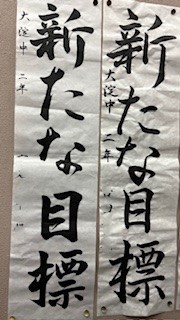 新たな目標
大淀中 二年
新たな目標
大淀中 二年